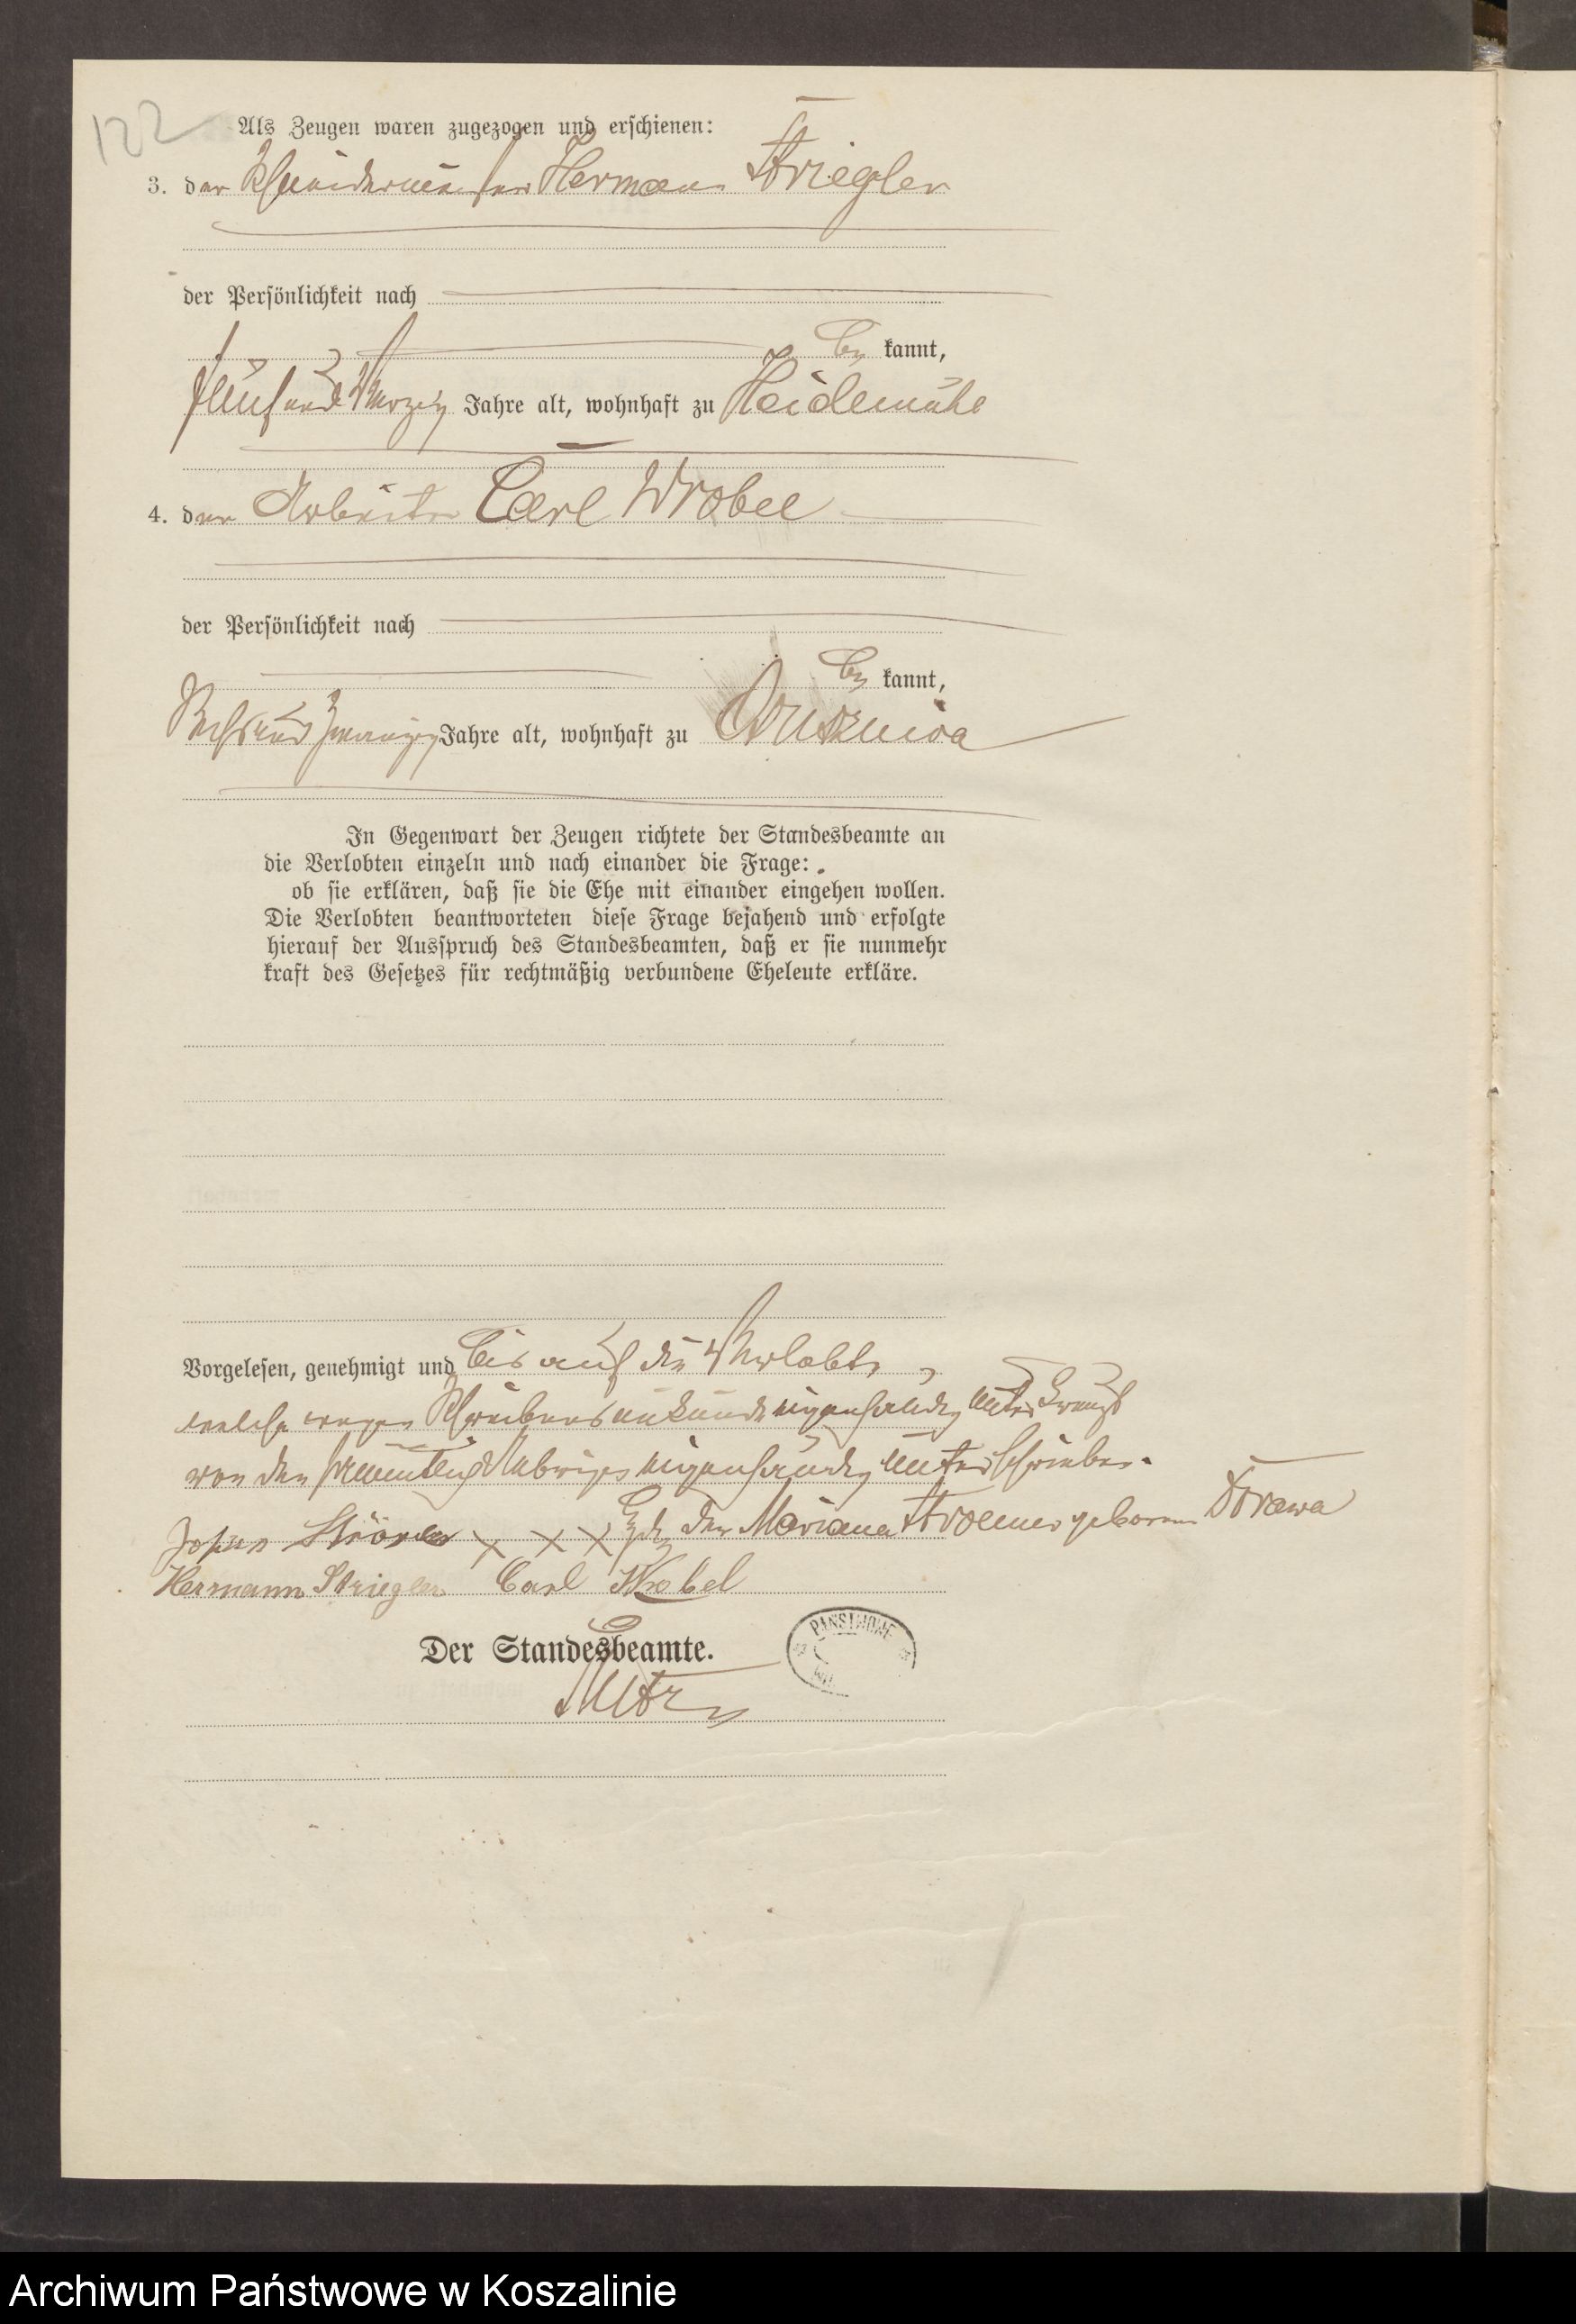 122
Als Zeugen waren zugezogen und erschienen:
3. der Schneidermeister Hermann Striegler
der Persönlichkeit nach
be kannt,
fünf und vierzig Jahre alt, wohnhaft zu Heidemühl
4. der Arbeiter Carl Wrobel
der Persönlichkeit nach
be kannt,
sechs und zwanzig Jahre alt, wohnhaft zu
In Gegenwart der Zeugen richtete der Standesbeamte an
die Verlobten einzeln und nach einander die Frage:
ob sie erklären, daß sie die Ehe mit einander eingehen wollen.
Die Verlobten beantworteten diese Frage bejahend und erfolgte
hierauf der Ausspruch des Standesbeamten, daß er sie nunmehr
kraft des Gesetzes für rechtmäßig verbundene Eheleute erkläre.
Vorgelesen, genehmigt und bis auf die Verlobte,
welche wegen Schreibensunkunde eigenhändig unterkreuzt
von den sämmtlich Uebrigen eigenhändig unterschrieben.
Josef xxx der Mariana geborene
Hermann Striegler Carl Wrobel
Der Standesbeamte.
PAŃSTWOWE
Archiwum Państwowe w Koszalinie